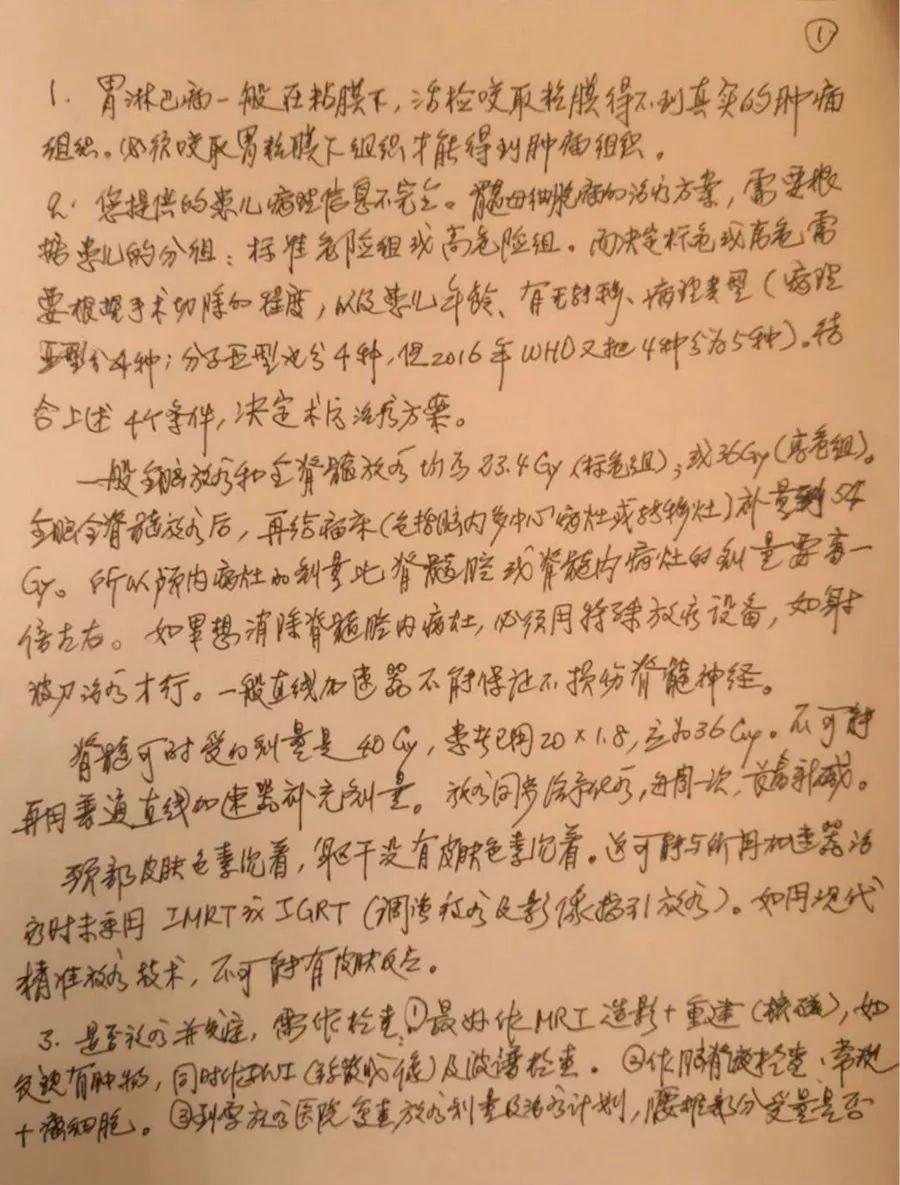 ①
1. 胃淋巴瘤一般在粘膜下，活检咬取粘膜得不到真实的肿瘤
组织。必须咬取胃粘膜下组织才能得到肿瘤组织。
2. 您提供的患儿病理信息不完全。髓母细胞瘤的治疗方案，需要根
据患儿的分组：标准危险组或高危险组。而决定标危或高危需
要根据手术切除的程度，以及患儿年龄、有无转移、病理类型（病理
亚型分4种；分子亚型也分4种，但2016年WHO又把4种分为5种）。结
合上述4个条件，决定术后治疗方案。
一般全脑放疗和全脊髓放疗均为23.4Gy（标危组），或36Gy（高危组）。
全脑全脊髓放疗后，再给瘤床（包括脑内多中心病灶或转移灶）补量到54
Gy。所以颅内病灶的剂量比脊髓腔或脊髓内病灶的剂量要高一
倍左右。如果想消除脊髓腔内病灶，必须用特殊放疗设备，如射
波刀治疗才行。一般直线加速器不能保证不损伤脊髓神经。
脊髓可耐受的剂量是40Gy，患者已用20×1.8，应为36Gy。不可能
再用普通直线加速器补充剂量。放疗同步给予化疗，每周一次，长春新碱。
颈部皮肤色素沉着，躯干没有皮肤色素沉着。这可能与所用加速器治
疗时未采用IMRT或IGRT（调强放疗及影像指引放疗）。如用现代
精准放疗技术，不可能有皮肤反应。
3. 是否放疗并发症，需作检查①最好作MRI造影+重建（核磁），如
发现有肿物，同时作DWI（弥散成像）及波谱检查。②作脑脊液检查、常规
+瘤细胞。③到原放疗医院复查放疗剂量及治疗计划，腰椎部分受量是否